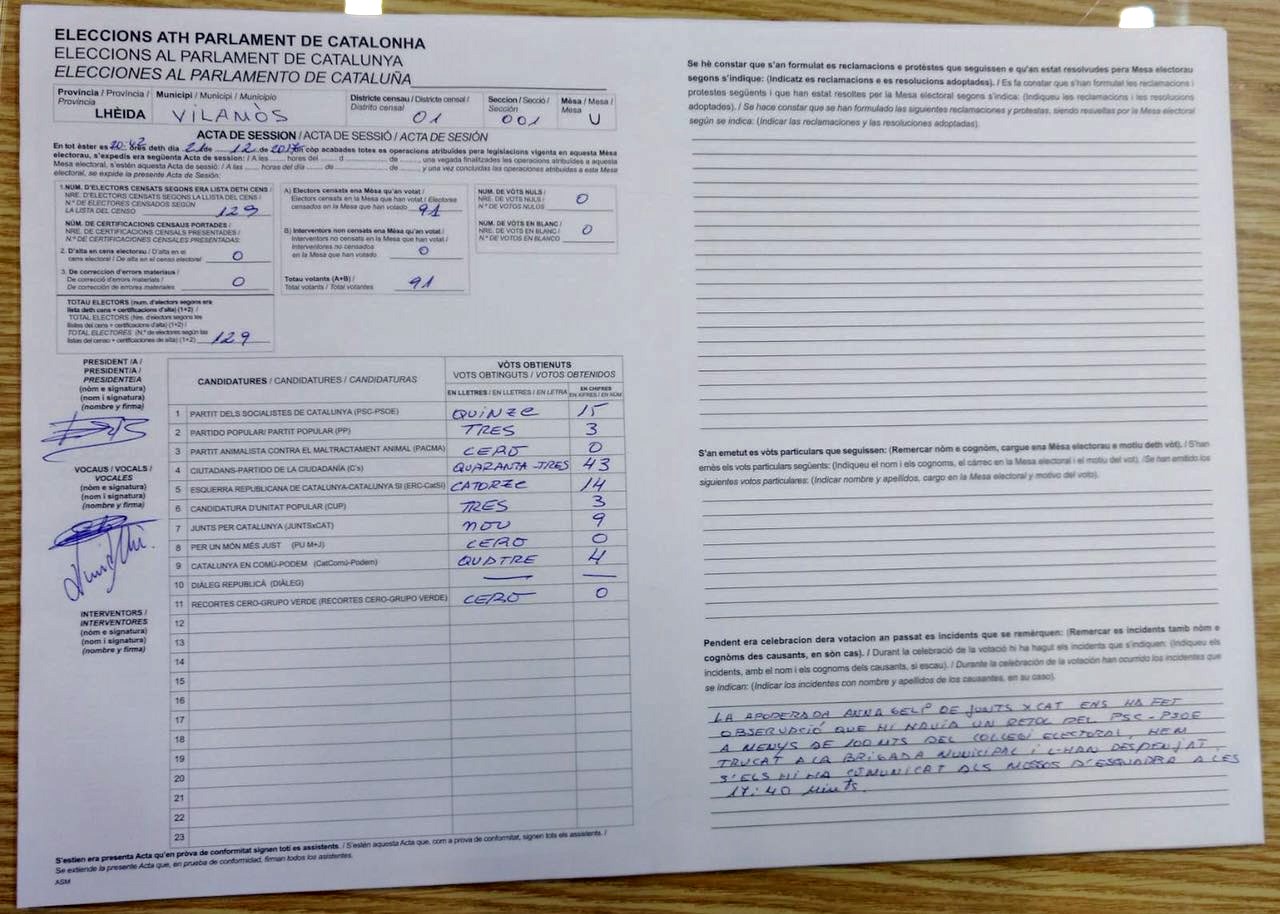 ELECCIONS ATH PARLAMENT DE CATALONHA
ELECCIONS AL PARLAMENT DE CATALUNYA
ELECCIONES AL PARLAMENTO DE CATALUÑA
Província / Província / Provincia
LHÈIDA
Municipi / Municipi / Municipio
VILAMÒS
Districte censau / Districte censal / Distrito censal
01
Seccion / Secció / Sección
001
Mèsa / Mesa / Mesa
U
ACTA DE SESSION / ACTA DE SESSIÓ / ACTA DE SESIÓN
En tot èster es 20:45 ores deth dia 21 de 12 de 2017 en còp acabades totes es operacions atribuïdes per legislacions vigenta en aquesta Mèsa
electorau, s'expedís era següenta Acta de session: / A les ...... hores del ...... d ............ de ........, una vegada finalitzades les operacions atribuïdes a aquesta
Mesa electoral, s'estén aquesta Acta de sessió: / A las ...... horas del día ...... de ............ de ........ y una vez concluidas las operaciones atribuidas a esta Mesa
electoral, se expide la presente Acta de Sesión:
1.NÚM. D'ELECTORS CENSATS SEGONS ERA LISTA DETH CENS /
NRE. D'ELECTORS CENSATS SEGONS LA LLISTA DEL CENS /
N.º DE ELECTORES CENSADOS SEGÚN
LA LISTA DEL CENSO 129
NÚM. DE CERTIFICACIONS CENSAUS PORTADES /
NRE. DE CERTIFICACIONS CENSALS PRESENTADES /
N.º DE CERTIFICACIONES CENSALES PRESENTADAS:
2. D'alta en cens electorau / D'alta en el
cens electoral / De alta en el censo electoral 0
3. De correccion d'errors materiaus /
De correcció d'errors materials /
De corrección de errores materiales 0
TOTAU ELECTORS (num. d'electors segons era
lista deth cens + certificacions d'alta) (1+2) /
TOTAL ELECTORS (Nre. d'electors segons les
llistes del cens + certificacions d'alta) (1+2) /
TOTAL ELECTORES (N.º de electores según las
listas del censo + certificaciones de alta) (1+2) 129
A) Electors censats ena Mèsa qu'an votat /
Electors censats en la Mesa que han votat / Electores
censados en la Mesa que han votado 91
B) Interventors non censats ena Mèsa qu'an votat /
Interventors no censats en la Mesa que han votat /
Interventores no censados
en la Mesa que han votado 0
Totau votants (A+B) /
Total votants / Total votantes 91
NUM. DE VÒTS NULS /
NRE. DE VOTS NULS /
N.º DE VOTOS NULOS 0
NUM. DE VÒTS EN BLANC /
NRE. DE VOTS EN BLANC /
N.º DE VOTOS EN BLANCO 0
PRESIDENT /A /
PRESIDENT/A /
PRESIDENTE/A
(nòm e signatura)
(nom i signatura)
(nombre y firma)
VOCAUS / VOCALS /
VOCALES
(nòm e signatura)
(nom i signatura)
(nombre y firma)
INTERVENTORS /
INTERVENTORES
(nòm e signatura)
(nom i signatura)
(nombre y firma)
CANDIDATURES / CANDIDATURES / CANDIDATURAS
VÒTS OBTIENUTS
VOTS OBTINGUTS / VOTOS OBTENIDOS
EN LLETRES / EN LLETRES / EN LETRA
EN CHIFRES
EN XIFRES / EN NÚM
1 PARTIT DELS SOCIALISTES DE CATALUNYA (PSC-PSOE) QUINZE 15
2 PARTIDO POPULAR/ PARTIT POPULAR (PP) TRES 3
3 PARTIT ANIMALISTA CONTRA EL MALTRACTAMENT ANIMAL (PACMA) CERO 0
4 CIUTADANS-PARTIDO DE LA CIUDADANÍA (C's) QUARANTA-TRES 43
5 ESQUERRA REPUBLICANA DE CATALUNYA-CATALUNYA SÍ (ERC-CatSí) CATORZE 14
6 CANDIDATURA D'UNITAT POPULAR (CUP) TRES 3
7 JUNTS PER CATALUNYA (JUNTSxCAT) NOU 9
8 PER UN MÓN MÉS JUST (PU M+J) CERO 0
9 CATALUNYA EN COMÚ-PODEM (CatComú-Podem) QUATRE 4
10 DIÀLEG REPUBLICÀ (DIÀLEG) — —
11 RECORTES CERO-GRUPO VERDE (RECORTES CERO-GRUPO VERDE) CERO 0
12
13
14
15
16
17
18
19
20
21
22
23
S'estien era presenta Acta qu'en pròva de conformitat signen toti es assistents. / S'estén aquesta Acta que, com a prova de conformitat, signen tots els assistents. /
Se extiende la presente Acta que, en prueba de conformidad, firman todos los asistentes.
ASM
Se hè constar que s'an formulat es reclamacions e protèstes que seguissen e qu'an estat resolvudes pera Mesa electorau
segons s'indique: (Indicatz es reclamacions e es resolucions adoptades). / Es fa constar que s'han formulat les reclamacions i
protestes següents i que han estat resoltes per la Mesa electoral segons s'indica: (Indiqueu les reclamacions i les resolucions
adoptades). / Se hace constar que se han formulado las siguientes reclamaciones y protestas, siendo resueltas por la Mesa electoral
según se indica: (Indicar las reclamaciones y las resoluciones adoptadas).
S'an emetut es vòts particulars que seguissen: (Remercar nòm e cognòm, cargue ena Mèsa electorau e motiu deth vòt). / S'han
emès els vots particulars següents: (Indiqueu el nom i els cognoms, el càrrec en la Mesa electoral i el motiu del vot). / Se han emitido los
siguientes votos particulares: (Indicar nombre y apellidos, cargo en la Mesa electoral y motivo del voto).
Pendent era celebracion dera votacion an passat es incidents que se remèrquen: (Remercar es incidents tamb nòm e
cognòms des causants, en sòn cas). / Durant la celebració de la votació hi ha hagut els incidents que s'indiquen: (Indiqueu els
incidents, amb el nom i els cognoms dels causants, si escau). / Durante la celebración de la votación han ocurrido los incidentes que
se indican: (Indicar los incidentes con nombre y apellidos de los causantes, en su caso).
LA APODERADA ANNA GELP DE JUNTS X CAT ENS HA FET
OBSERVACIÓ QUE HI HAVIA UN RETOL DEL PSC-PSOE
A MENYS DE 100 MTS DEL COL·LEGI ELECTORAL, HEM
TRUCAT A LA BRIGADA MUNICIPAL I L'HAN DESPENJAT.
S'ELS HI HA COMUNICAT ALS MOSSOS D'ESQUADRA A LES
17:40 minuts.